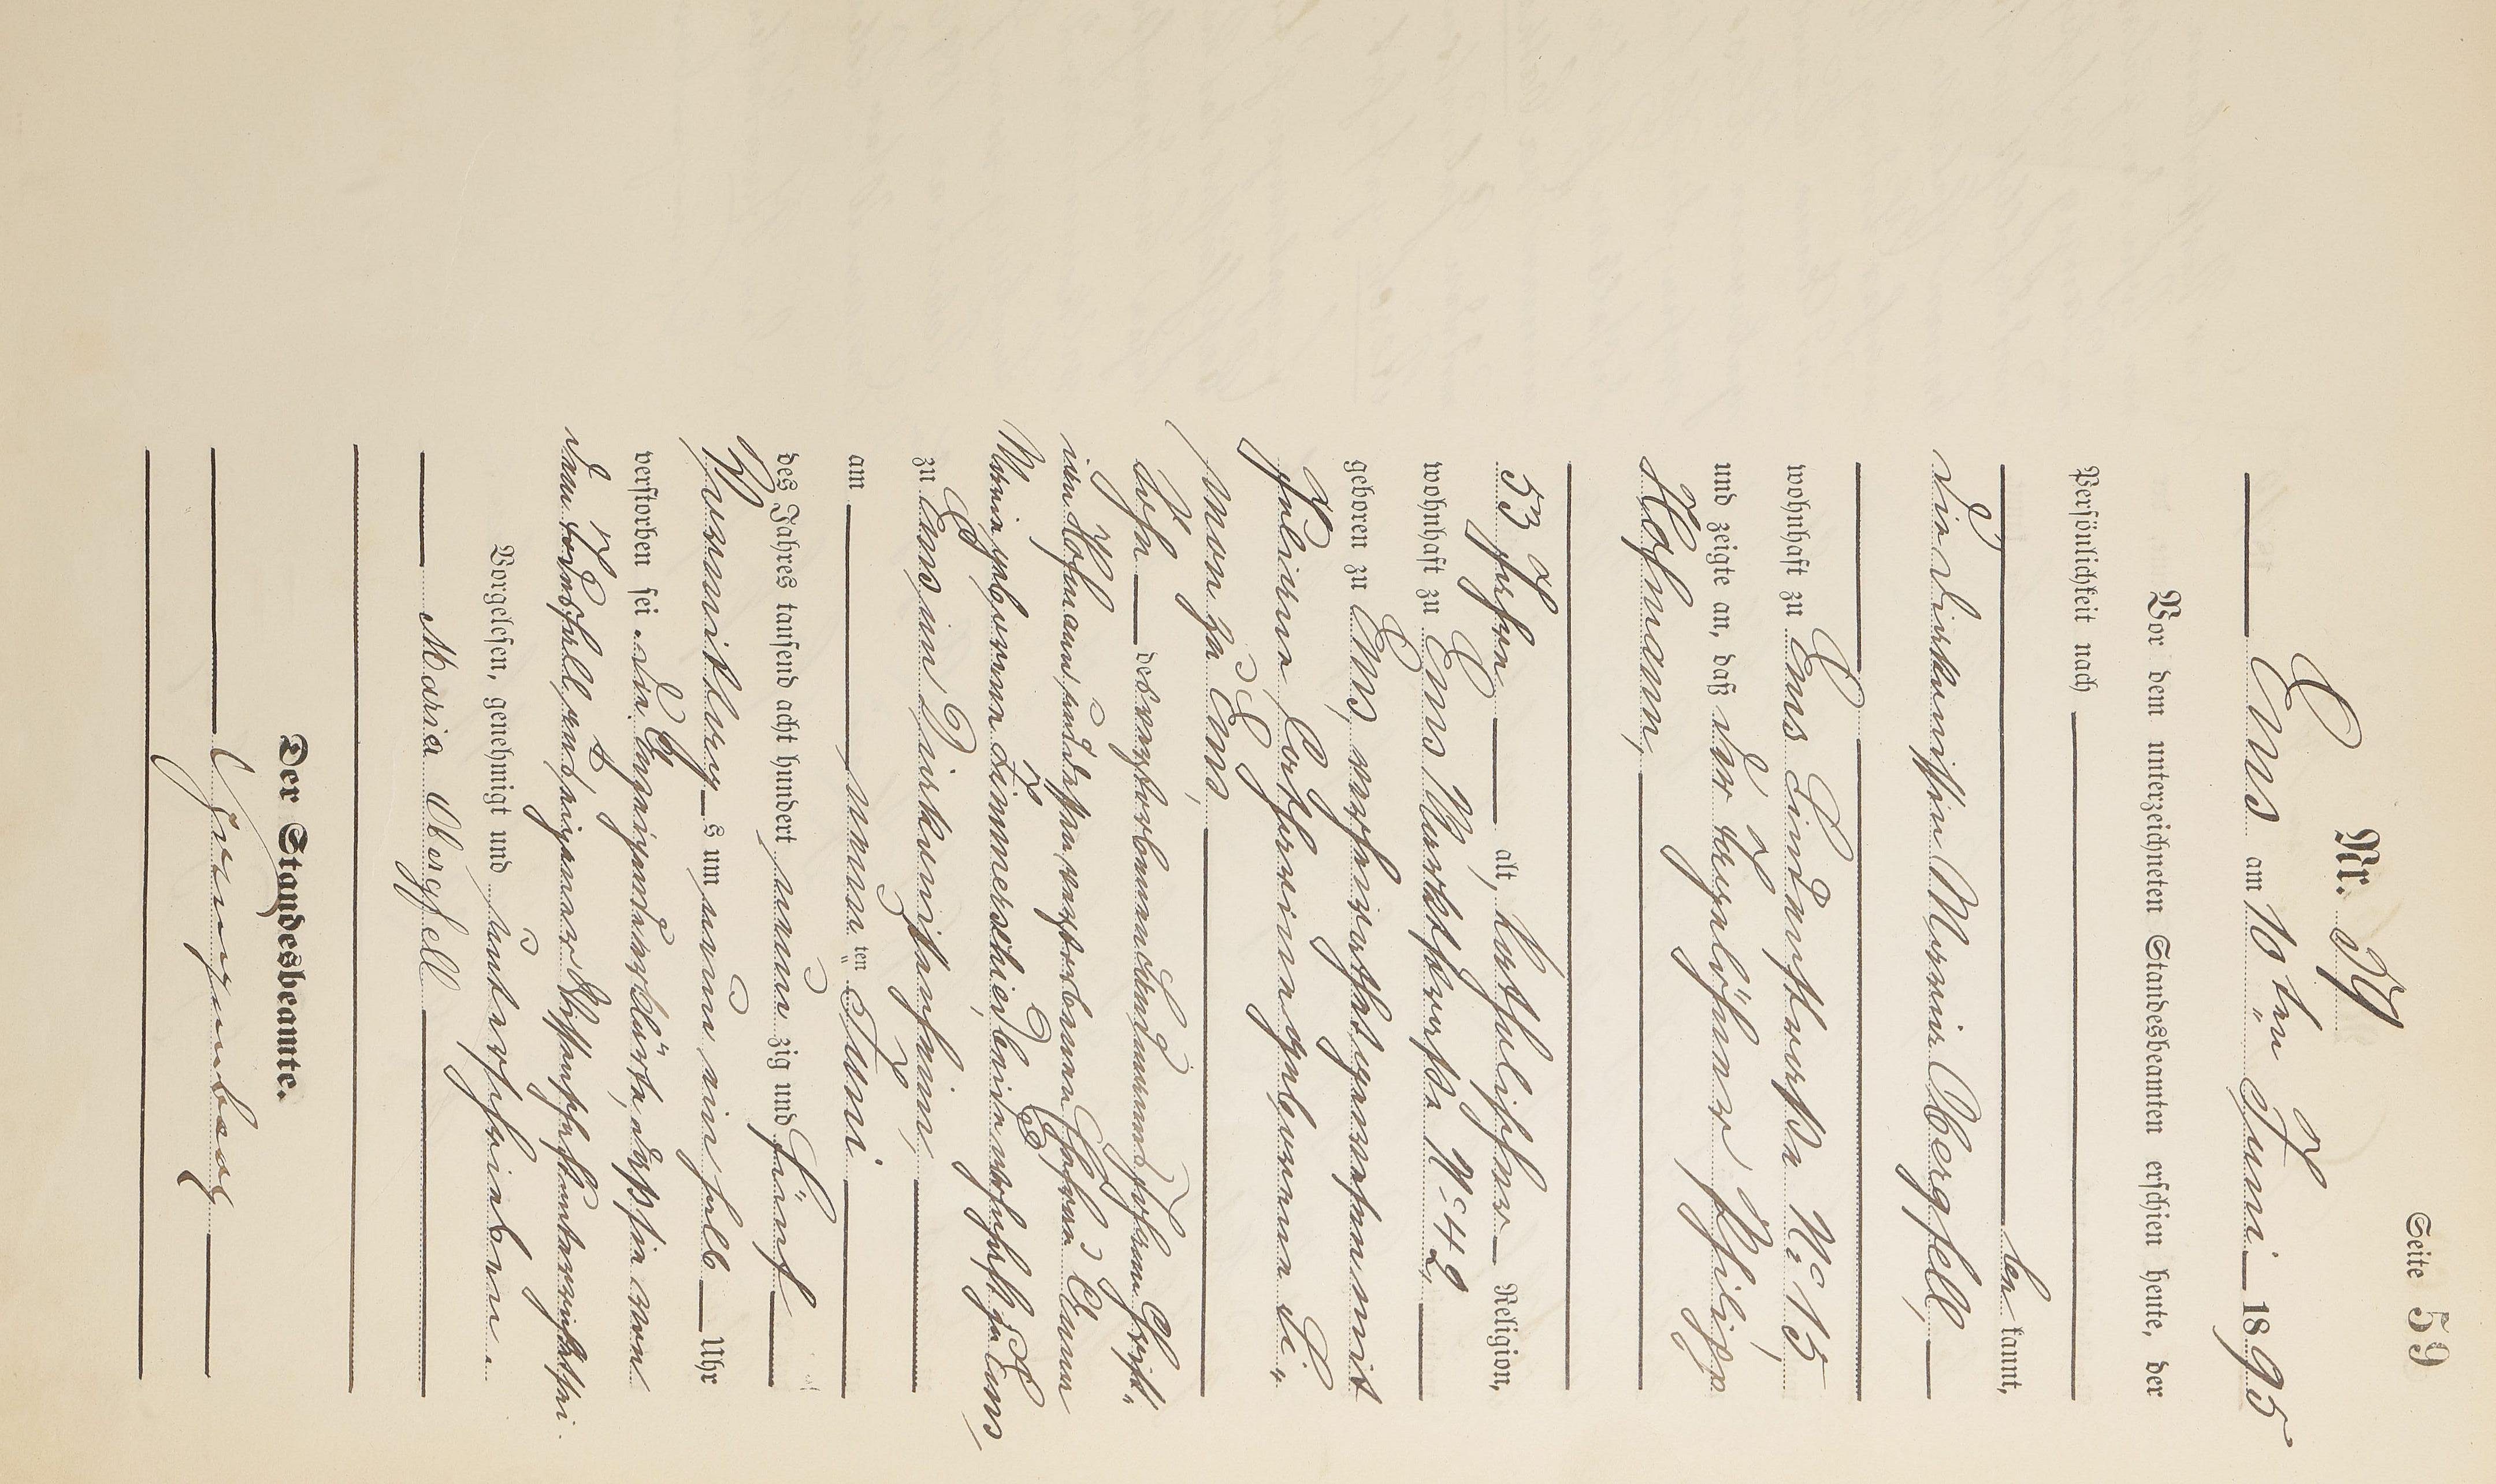 Seite 59
Nr. 59
Ems am 10 ten Juni 1895
Vor dem unterzeichneten Standesbeamten erschien heute, der
Persönlichkeit nach
be kannt,
die Diakonissin Maria Obergfell,
wohnhaft zu Ems Lindenstraße No 15,
und zeigte an, daß der Tagelöhner Philipp
Hofmann,
53 Jahre alt, katholischer Religion,
wohnhaft zu Ems Marktstraße No 42,
geboren zu Ems, verheirathet gewesen mit
Juliane Catharine geborene Li-
mon zu Ems,
Sohn des verstorbenen Johann Christ-
ian Hofmann, und dessen verstorbenen Ehefrau Anna
Maria geborenen Zimmerschied, beide wohnhaft zu Ems,
zu Ems im Diakonissenheim,
am neun ten Juni
des Jahres tausend acht hundert neun zig und fünf
Vormittags um neun ein halb Uhr
verstorben sei. Die Anzeigende erklärte, daß sie von
dem Todesfall aus eigener Wissenschaft unterrichtet sei.
Vorgelesen, genehmigt und unterschrieben.
Maria Obergfell
Der Standesbeamte.